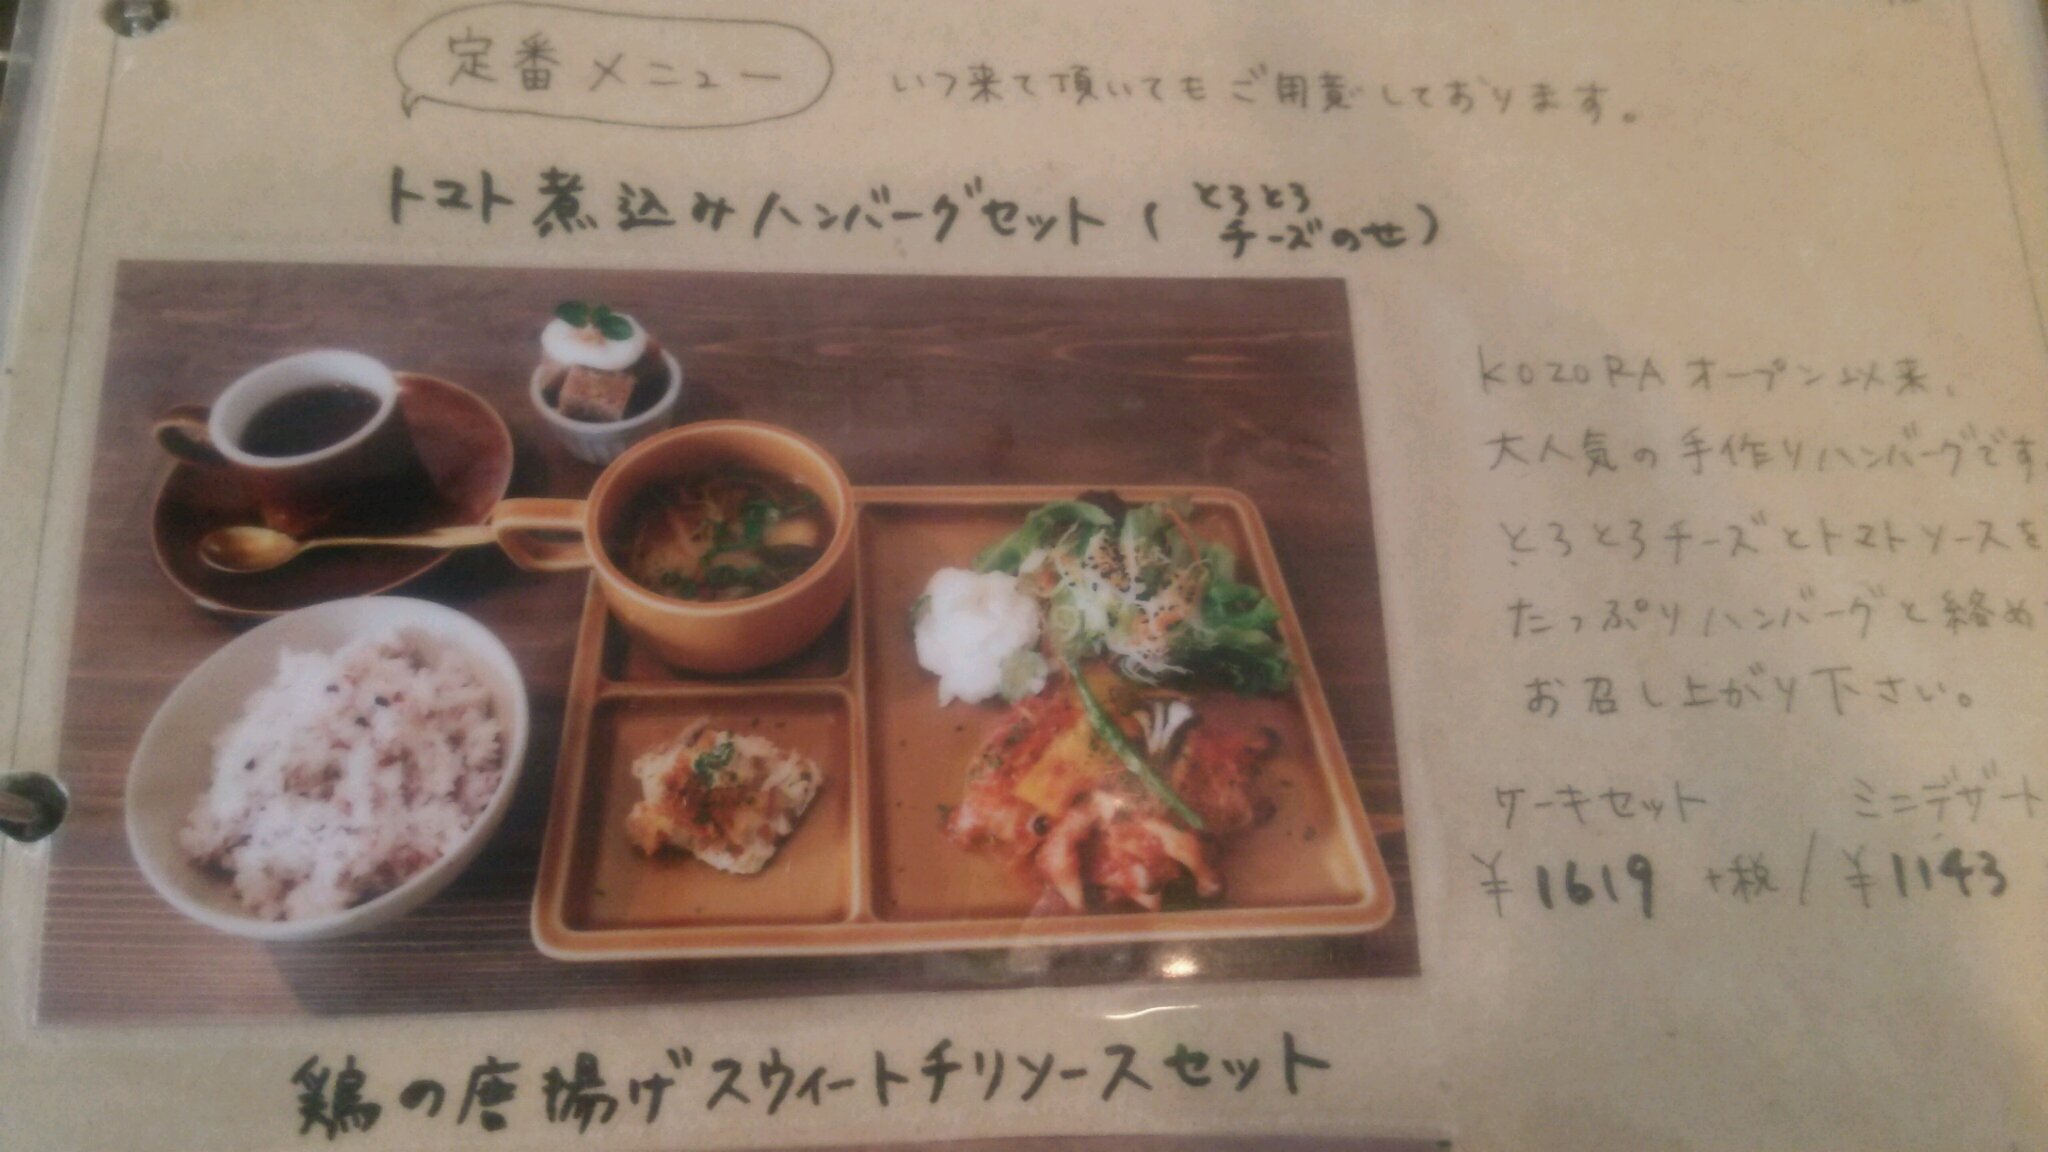 定番メニュー
いつ来て頂いてもご用意しております。
トマト煮込みハンバーグセット(とろとろ
チーズのせ)
KOZORAオープン以来、
大人気の手作りハンバーグです。
とろとろチーズとトマトソースを
たっぷりハンバーグと絡め
お召し上がり下さい。
ケーキセット ミニデザート
¥1619 +税 / ¥1143
鶏の唐揚げスウィートチリソースセット